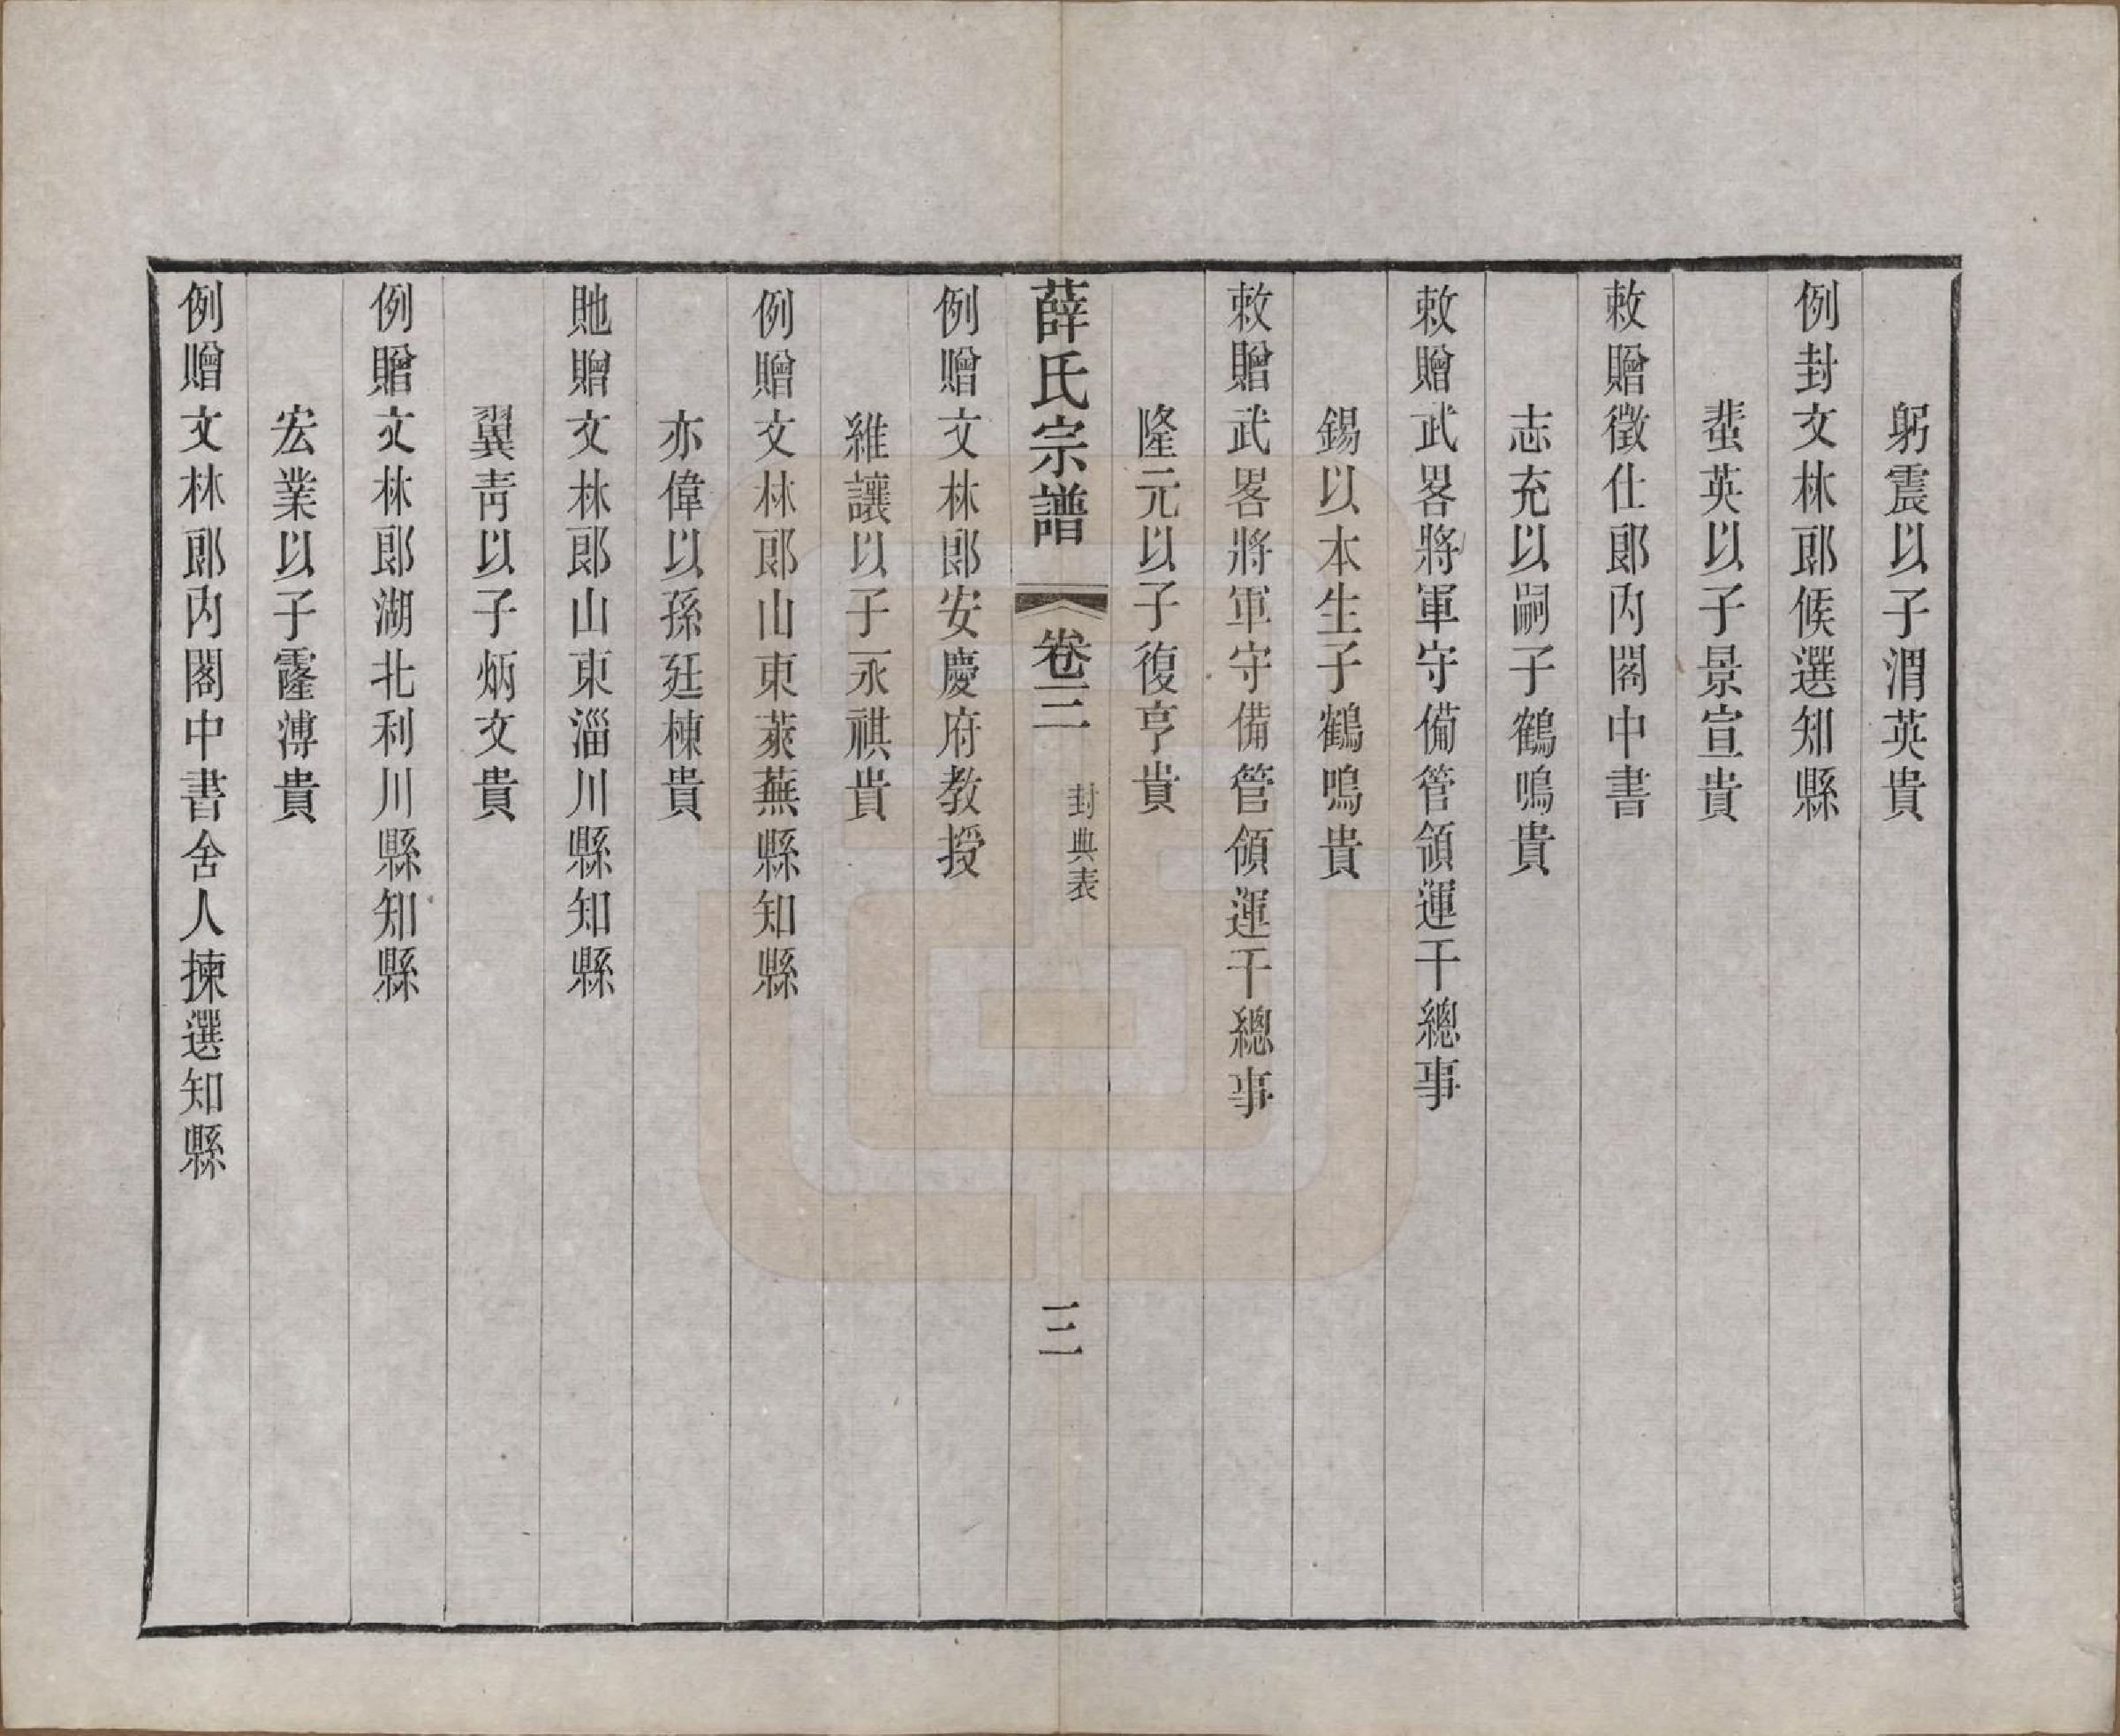 躬震以子渭英貴
例封文林郎候選知縣
蜚英以子景宣貴
敕贈徵仕郎內閣中書
志充以嗣子鶴鳴貴
敕贈武畧將軍守備管領運千總事
錫以本生子鶴鳴貴
敕贈武畧將軍守備管領運千總事
隆元以子復亨貴
薛氏宗譜 卷三 封典表 三
例贈文林郎安慶府教授
維讓以子永祺貴
例贈文林郎山東萊蕪縣知縣
亦偉以孫廷棟貴
貤贈文林郎山東淄川縣知縣
翼靑以子炳文貴
例贈文林郎湖北利川縣知縣
宏業以子霳溥貴
例贈文林郎內閣中書舍人揀選知縣